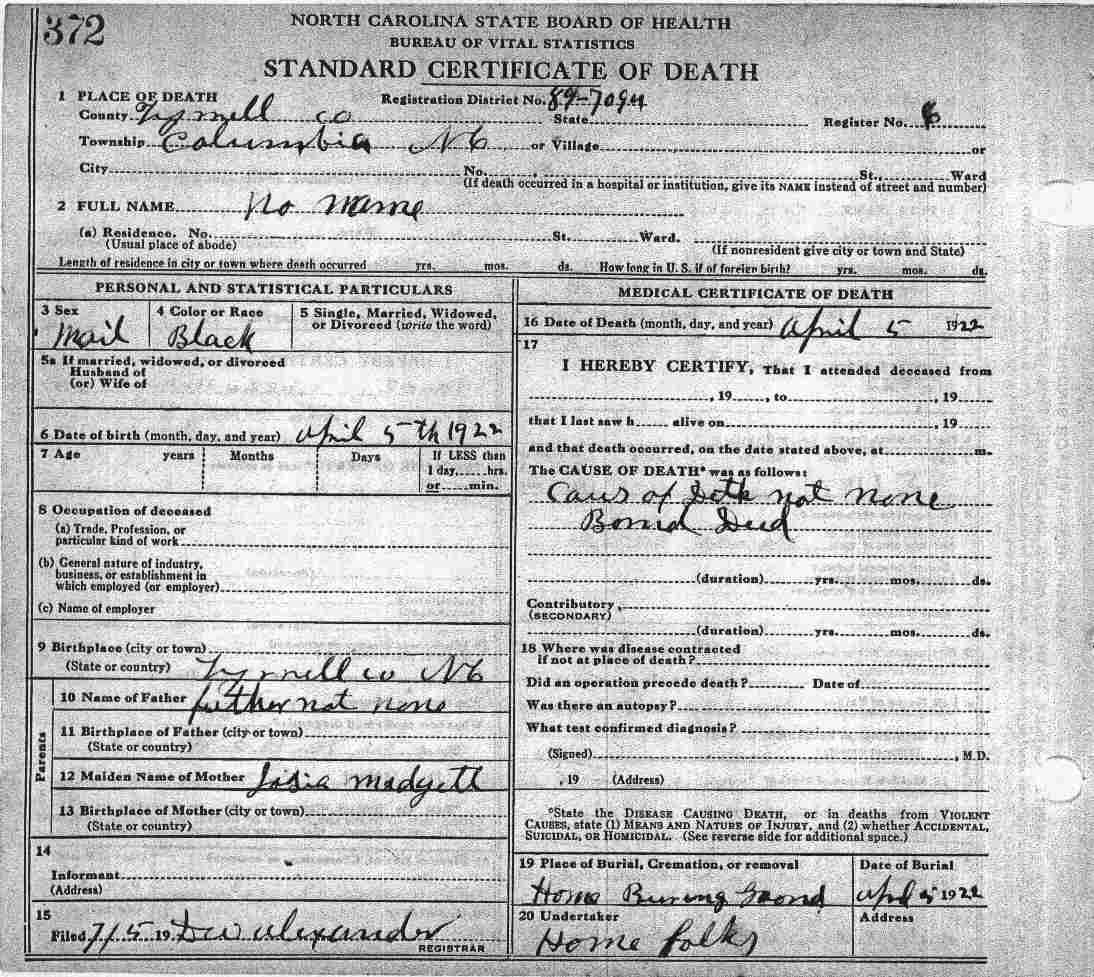 372
NORTH CAROLINA STATE BOARD OF HEALTH
BUREAU OF VITAL STATISTICS
STANDARD CERTIFICATE OF DEATH
1 PLACE OF DEATH
Registration District No. 89-7094
County Tyrrell co State Register No. 6
Township Columbia NC or Village or
City No. , St., Ward
(If death occurred in a hospital or institution, give its NAME instead of street and number)
2 FULL NAME No name
(a) Residence. No. St. Ward.
(Usual place of abode) (If nonresident give city or town and State)
Length of residence in city or town where death occurred yrs. mos. ds. How long in U. S. if of foreign birth? yrs. mos. ds.
PERSONAL AND STATISTICAL PARTICULARS
3 Sex
Mail
4 Color or Race
Black
5 Single, Married, Widowed,
or Divorced (write the word)
5a If married, widowed, or divorced
Husband of
(or) Wife of
6 Date of birth (month, day, and year) April 5th 1922
7 Age years Months Days If LESS than
1 day, hrs.
or min.
8 Occupation of deceased
(a) Trade, Profession, or
particular kind of work
(b) General nature of industry,
business, or establishment in
which employed (or employer)
(c) Name of employer
9 Birthplace (city or town)
(State or country) Tyrrell co NC
Parents
10 Name of Father father not none
11 Birthplace of Father (city or town)
(State or country)
12 Maiden Name of Mother Josia Madgett
13 Birthplace of Mother (city or town)
(State or country)
14
Informant
(Address)
15
Filed 7/5 19 D W Alexander
REGISTRAR
MEDICAL CERTIFICATE OF DEATH
16 Date of Death (month, day, and year) April 5 1922
17
I HEREBY CERTIFY, That I attended deceased from
, 19 , to , 19
that I last saw h alive on , 19
and that death occurred, on the date stated above, at m.
The CAUSE OF DEATH* was as follows:
Caus of Deth not none
Bornd Deed
(duration) yrs. mos. ds.
Contributory
(SECONDARY)
(duration) yrs. mos. ds.
18 Where was disease contracted
if not at place of death?
Did an operation precede death? Date of
Was there an autopsy?
What test confirmed diagnosis?
(Signed) , M.D.
, 19 (Address)
*State the DISEASE CAUSING DEATH, or in deaths from VIOLENT
CAUSES, state (1) MEANS AND NATURE OF INJURY, and (2) whether ACCIDENTAL,
SUICIDAL, OR HOMICIDAL. (See reverse side for additional space.)
19 Place of Burial, Cremation, or removal
Home Buring Grond
Date of Burial
April 5 1922
20 Undertaker
Home folks
Address